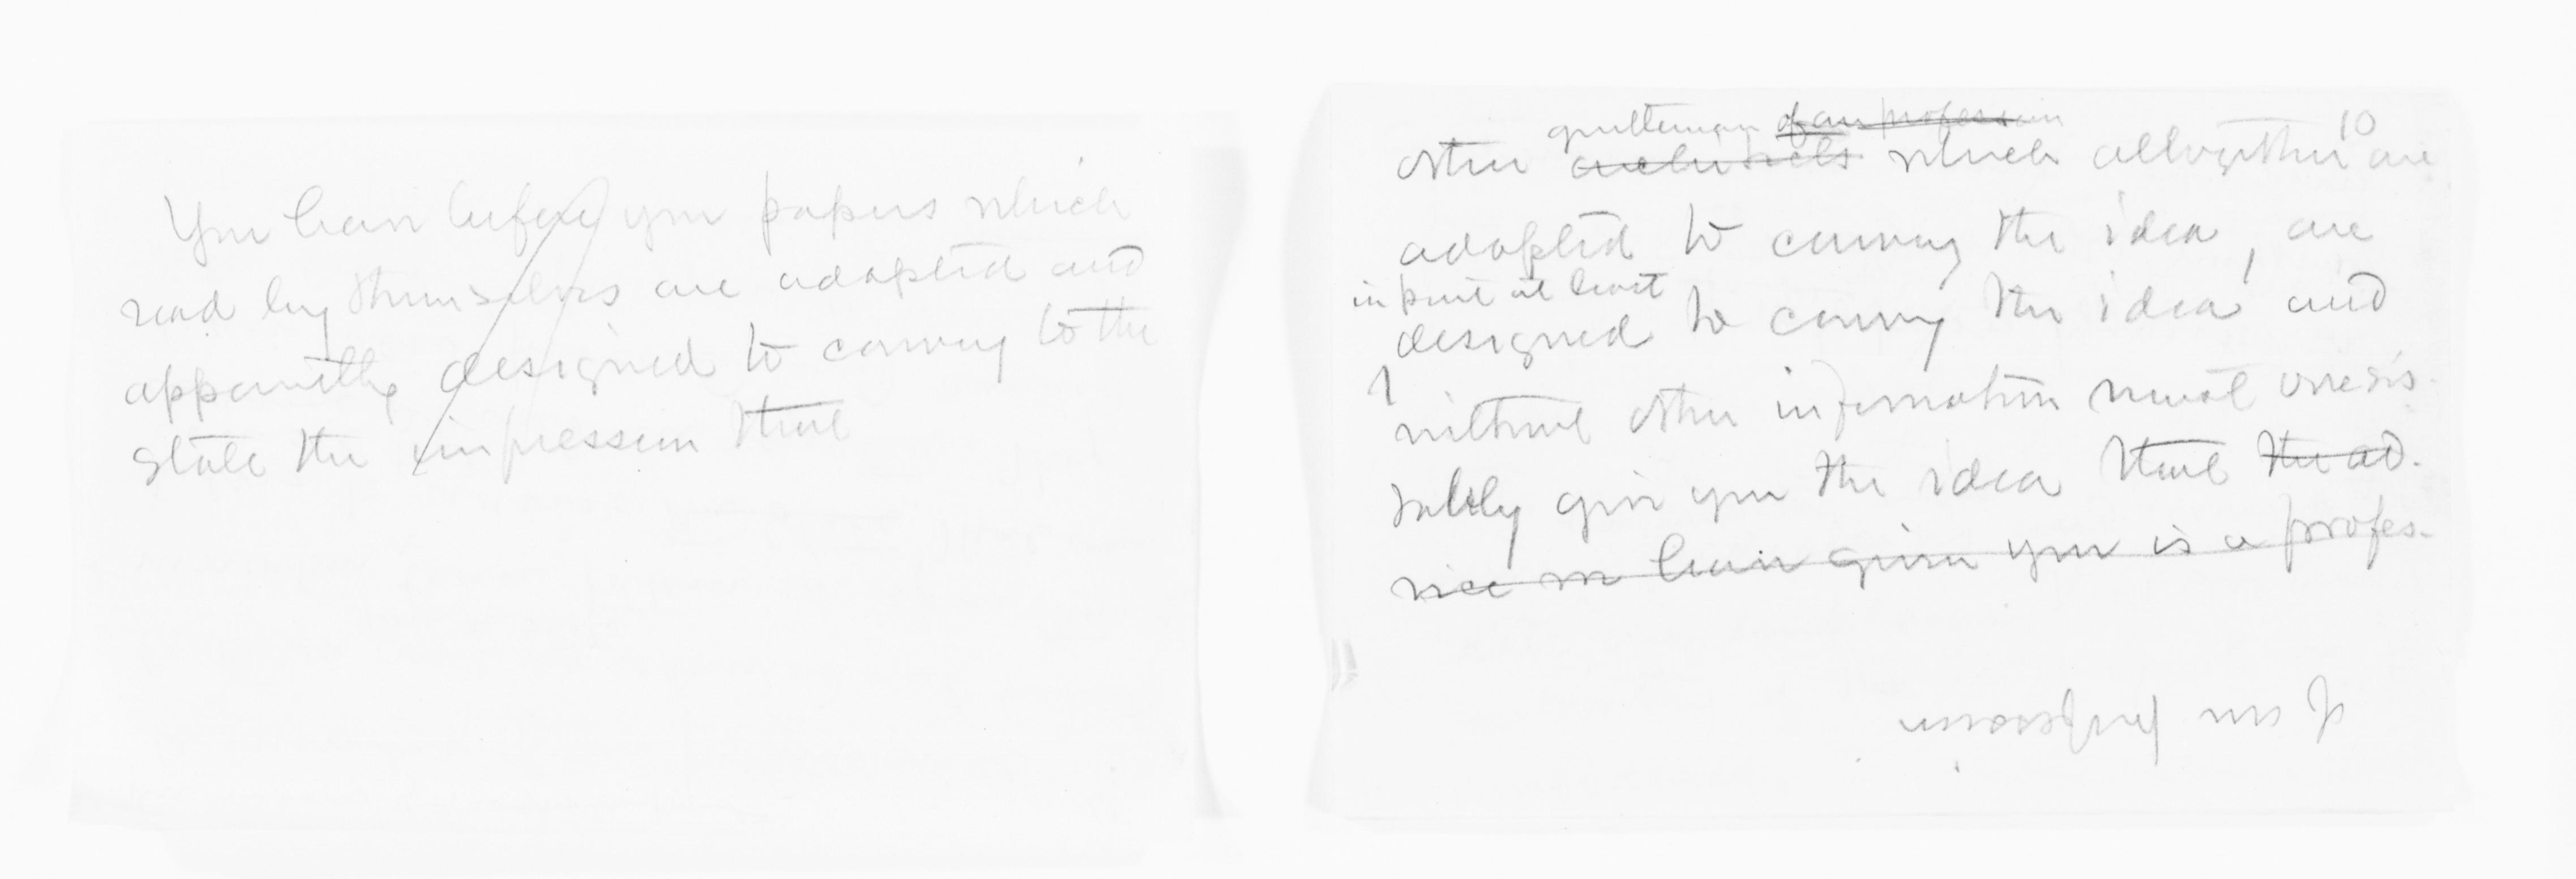 You have before you papers which
read by themselves are adapted and
apparently designed to convey to the
State the impression that
10
gentleman of our profession
other architects which altogether are
adapted to convey the idea, are
in part at least
designed to convey the idea and
without other information must irresis-
tably give you the idea that the ad-
vice we have given you is a profes-
of our profession